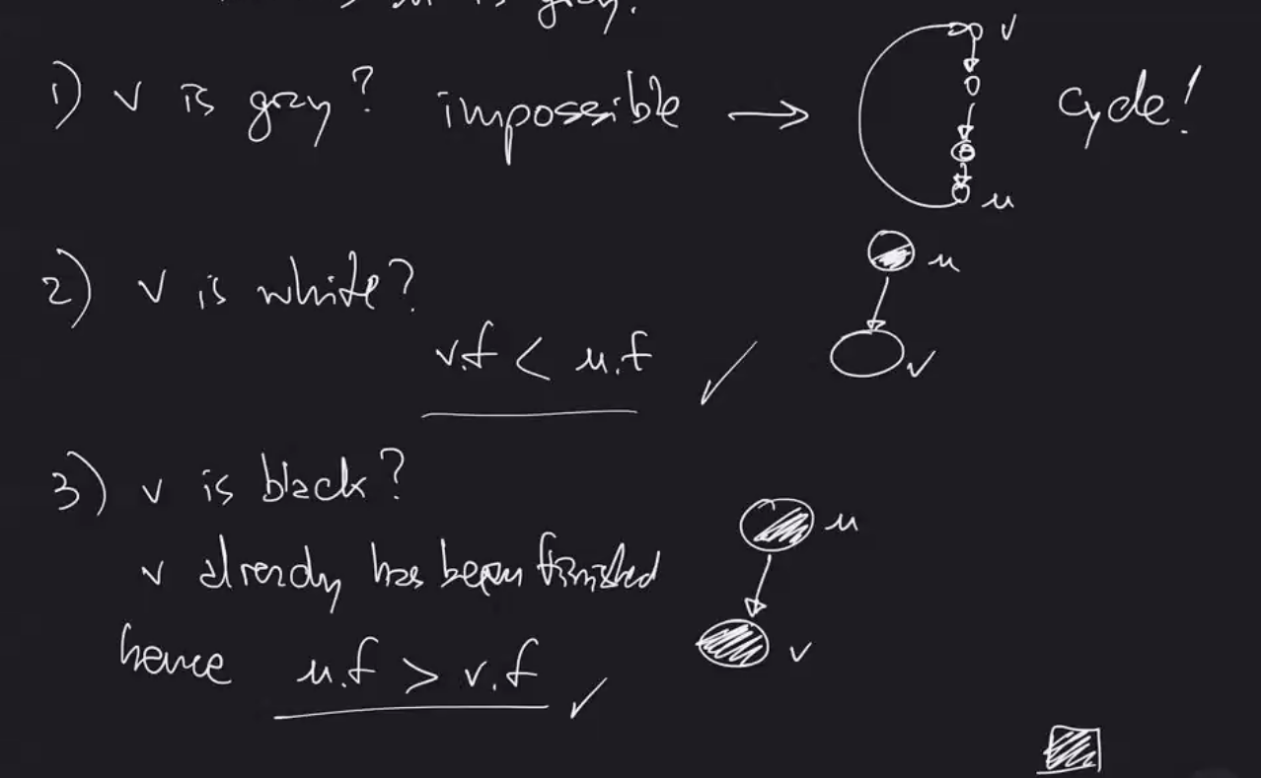 u is gray.
1) v is gray? impossible → v cycle!
u
2) v is white? u
v.f < u.f ✓ v
3) v is black?
u
v already has been finished
hence u.f > v.f ✓ v